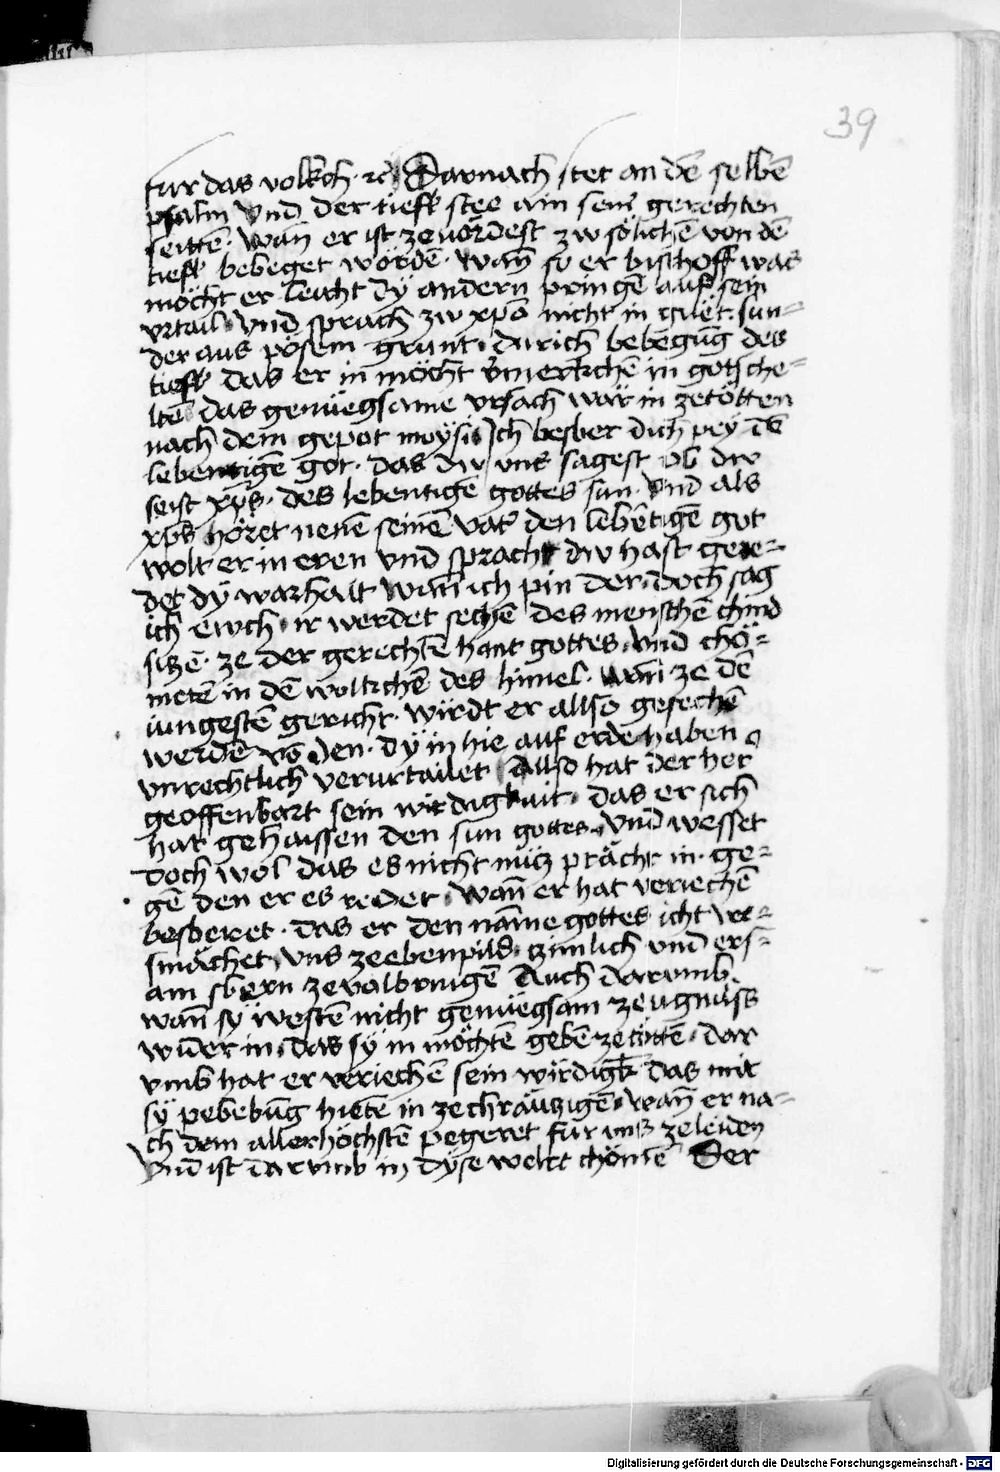 39
fur das volkch · ꝛc Darnach stet an dē selbē
psalm Vnd der tiefl stee ain seīr gerechten
seittē · wañ er ist zeuördest zw sölichē von dē
tiefl bebeget wördē · wañ so er bischoff was
möcht er leicht dÿ andern pringē auf sein
vrtail Vnd sprach zw xp̄o nicht in güet · sun-
der aus pösem grunt · durich bebegūg des
tiefl das er in möcht v̄merkchē in gotsche-
ltē das genüegsame vrsach wär in zetötten
nach dem gepot moÿsi Ich besber dich peÿ dē
lebentigē got · das dw vns sagest ob dw
seist xp̄s · des lebentigē gottes sun · Vnd als
xp̄s höret nenē seinē vat̄ den lebētigē got
wolt er in eren vnd sprach dw hast gere-
det dÿ warhait wañ ich pin der · doch sag
ich ewch · ir werdet sechē des menschē chind
siczē · ze der gerechtē hant gottes · Vnd chö-
metē in dē wolkchē des himel · wañ ze dē
iungestē gericht · wirdt er allso gesechē
werdē vō den · dÿ in hie auf erde haben
vnrechtlich verurtailet Allso hat der her
geoffenbart sein wirdigkait · das er sich
hat gehaissen den sun gottes · Vnd wesset
doch wol das es nicht nütz prächt in · ge-
gē den er es redet · wañ er hat veriechē
besberet · das er den nāme gottes icht ver-
smächet vns zeebenpild · zimlich vnd ers-
am sbern zevalbringē Auch darumb
wañ sÿ westē nicht genüegsam zeugnüss
wider in · das sÿ in möchtē gebē zetöttē · dar
vmb hat er veriechē sein wirdigk̄ das mit
sÿ pebebūg hietē in zechräuzigē · wañ er na-
ch dem allerhöchstē pegeret für vnß zeleiden
Vnd ist darumb in dÿse welt chömē Der
Digitalisierung gefördert durch die Deutsche Forschungsgemeinschaft - DFG